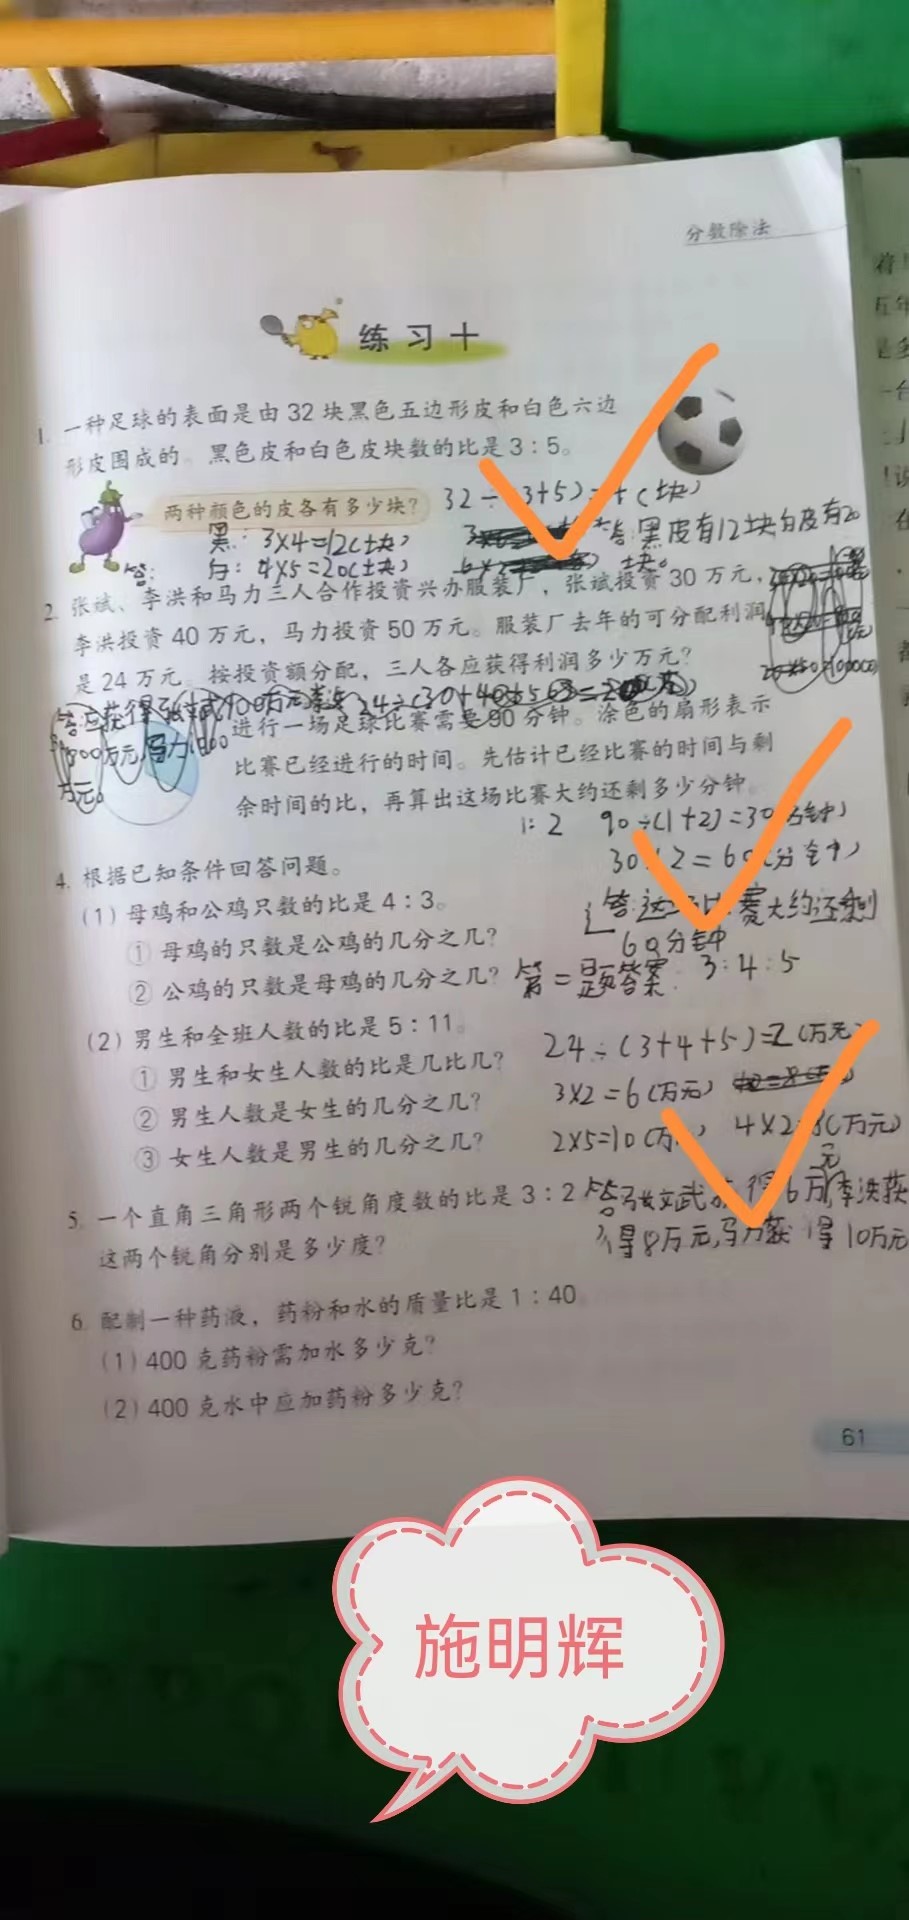 分数除法
练习十
1. 一种足球的表面是由32块黑色五边形皮和白色六边
形皮围成的。黑色皮和白色皮块数的比是3:5。
两种颜色的皮各有多少块?
32÷(3+5)=4(块)
黑:3×4=12(块)
答:黑皮有12块白皮有20
白:4×5=20(块)
块。
答:
2. 张斌、李洪和马力三人合作投资兴办服装厂,张斌投资30万元,
李洪投资40万元,马力投资50万元。服装厂去年的可分配利润
是24万元。按投资额分配,三人各应获得利润多少万元?
进行一场足球比赛需要90分钟。涂色的扇形表示
比赛已经进行的时间。先估计已经比赛的时间与剩
余时间的比,再算出这场比赛大约还剩多少分钟。
1:2 90÷(1+2)=30(分钟)
30×2=60(分钟)
答:这场比赛大约还剩
60分钟
4. 根据已知条件回答问题。
(1)母鸡和公鸡只数的比是4:3。
① 母鸡的只数是公鸡的几分之几?
② 公鸡的只数是母鸡的几分之几?
第二题答案:3:4:5
(2)男生和全班人数的比是5:11。
24÷(3+4+5)=2(万元)
① 男生和女生人数的比是几比几?
3×2=6(万元)
② 男生人数是女生的几分之几?
4×2=8(万元)
2×5=10(万)
③ 女生人数是男生的几分之几?
5. 一个直角三角形两个锐角度数的比是3:2
这两个锐角分别是多少度?
得8万元,马力获得10万元
6. 配制一种药液,药粉和水的质量比是1:40。
(1)400克药粉需加水多少克?
(2)400克水中应加药粉多少克?
61
施明辉